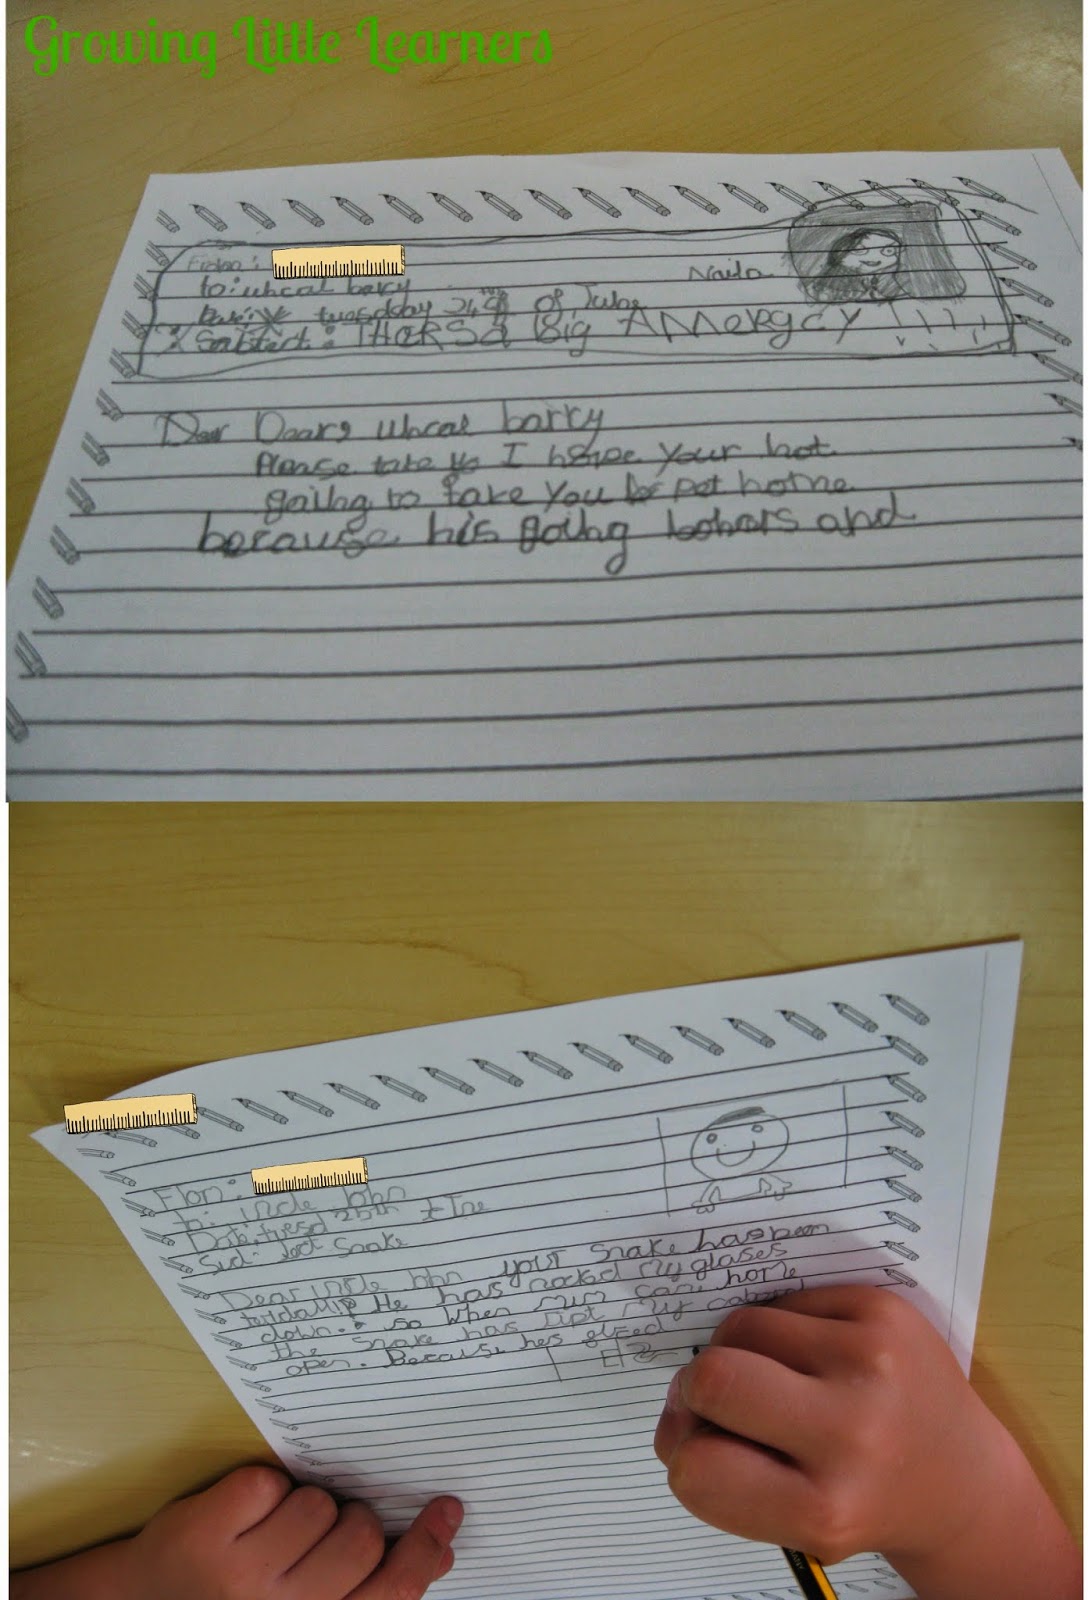 Growing Little Learners
From:
to: uhcal barry
Naila
Date: tuesday 24th of June
Subject: THERSa Big AMeRgcy !!!!
Dear Dears uhcal barry
Please take us I hope your hot
goilhg to take you pet home
because his goilhg and
Fron:
to: incle John
Date: tuesd 25th
Sud-ject Snake
Dear incle John your snake has been
He has nocked my glases
down. so when mum came home
the snake has ript my
open. Because hes